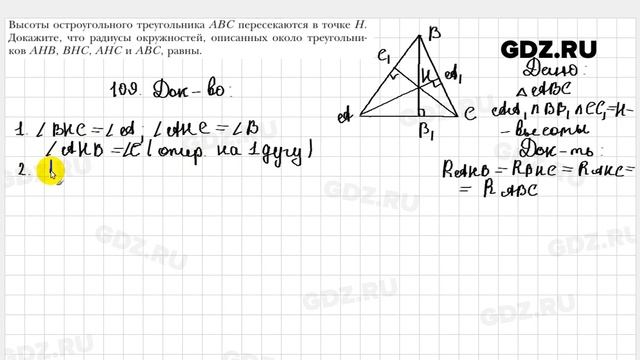 Высоты остроугольного треугольника ABC пересекаются в точке H.
Докажите, что радиусы окружностей, описанных около треугольни-
ков AHB, BHC, AHC и ABC, равны.
109. Док-во:
1. ∠BHC = ∠A; ∠AHC = ∠B
∠AHB = ∠C (опир. на 1 дугу)
2.
B
C₁
H
A₁
A
B₁
C
GDZ.RU
Дано:
△ABC
AA₁ ∩ BB₁ ∩ CC₁ = H-
- высоты
Док-ть:
R AHB = R BHC = R AHC =
= R ABC
GDZ.RU
GDZ.RU
GDZ.RU
GDZ.RU
GDZ.RU
GDZ.RU